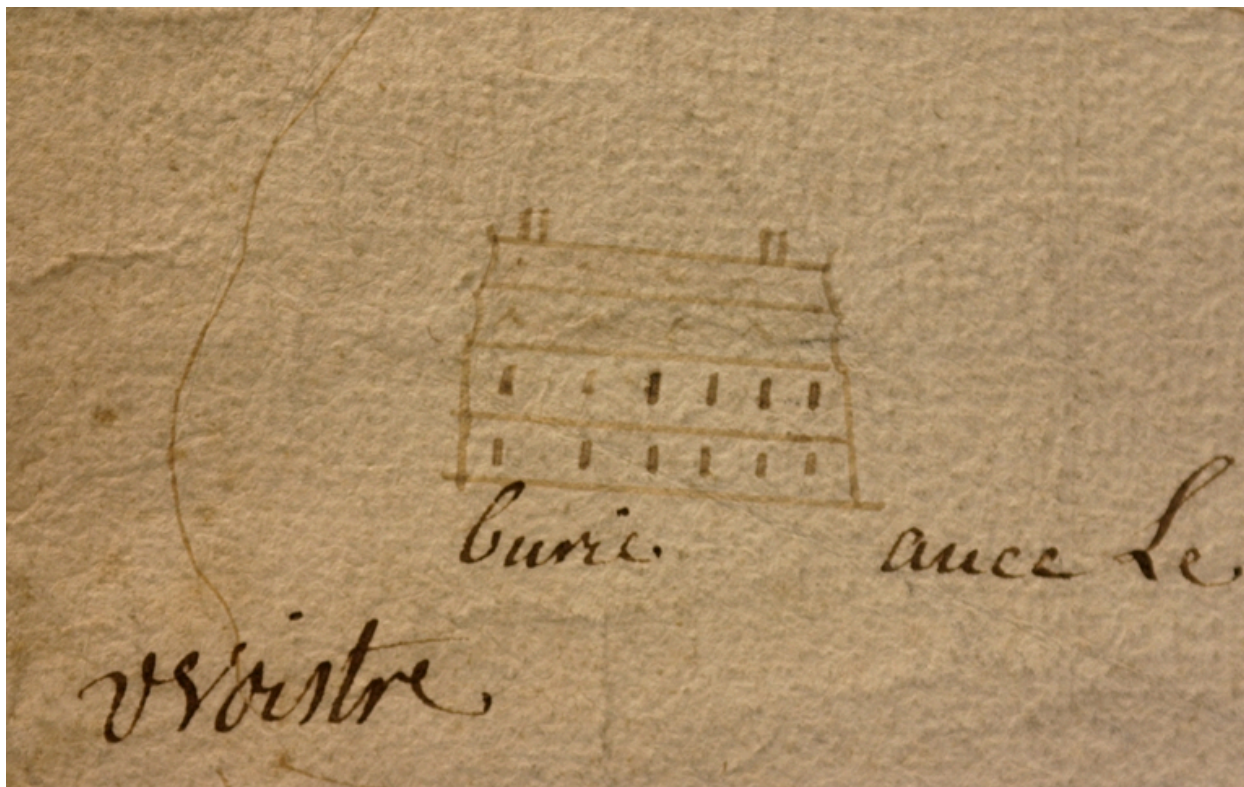 burie. ance Le
vevoistre